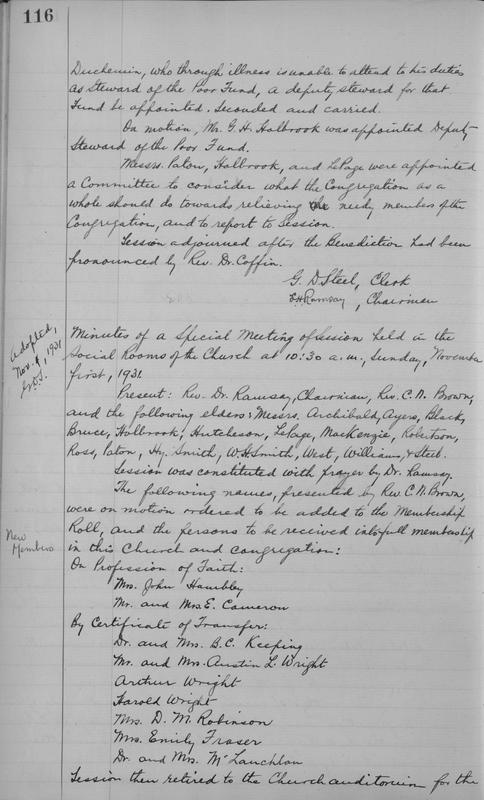 116
Duchemin, who through illness is unable to attend to his duties
as Steward of the Poor Fund, a deputy steward for that
Fund be appointed. Seconded and carried.
On motion, Mr. G. H. Holbrook was appointed Deputy
Steward of the Poor Fund.
Messrs. Paton, Holbrook, and LePage were appointed
a Committee to consider what the Congregation as a
whole should do towards relieving the needy members of the
Congregation, and to report to Session.
Session adjourned after the Benediction had been
pronounced by Rev. Dr. Coffin.
G. D. Steel, Clerk
Ramsay, Chairman
Adopted,
Nov. 9, 1931
G.D.S.
Minutes of a Special Meeting of Session held in the
Social Rooms of the Church at 10:30 a.m., Sunday, November
first, 1931.
Present: Rev. Dr. Ramsay, Chairman, Rev. C. N. Brown,
and the following elders: Messrs. Archibald, Ayers, Black,
Bruce, Holbrook, Hutcheson, LePage, MacKenzie, Robertson,
Ross, Paton, Hy. Smith, W. H. Smith, West, Williams, & Steel.
Session was constituted with prayer by Dr. Ramsay.
The following names, presented by Rev. C. N. Brown,
were on motion ordered to be added to the Membership
Roll, and the persons to be received into full membership
New
Members
in this Church and congregation:
On Profession of Faith:
Mrs. John Hambley
Mr. and Mrs. E. Cameron
By Certificate of Transfer:
Dr. and Mrs. B. C. Keeping
Mr. and Mrs. Austin L. Wright
Arthur Wright
Harold Wright
Mrs. D. M. Robinson
Mrs. Emily Fraser
Dr. and Mrs. McLauchlan
Session then retired to the Church auditorium for the